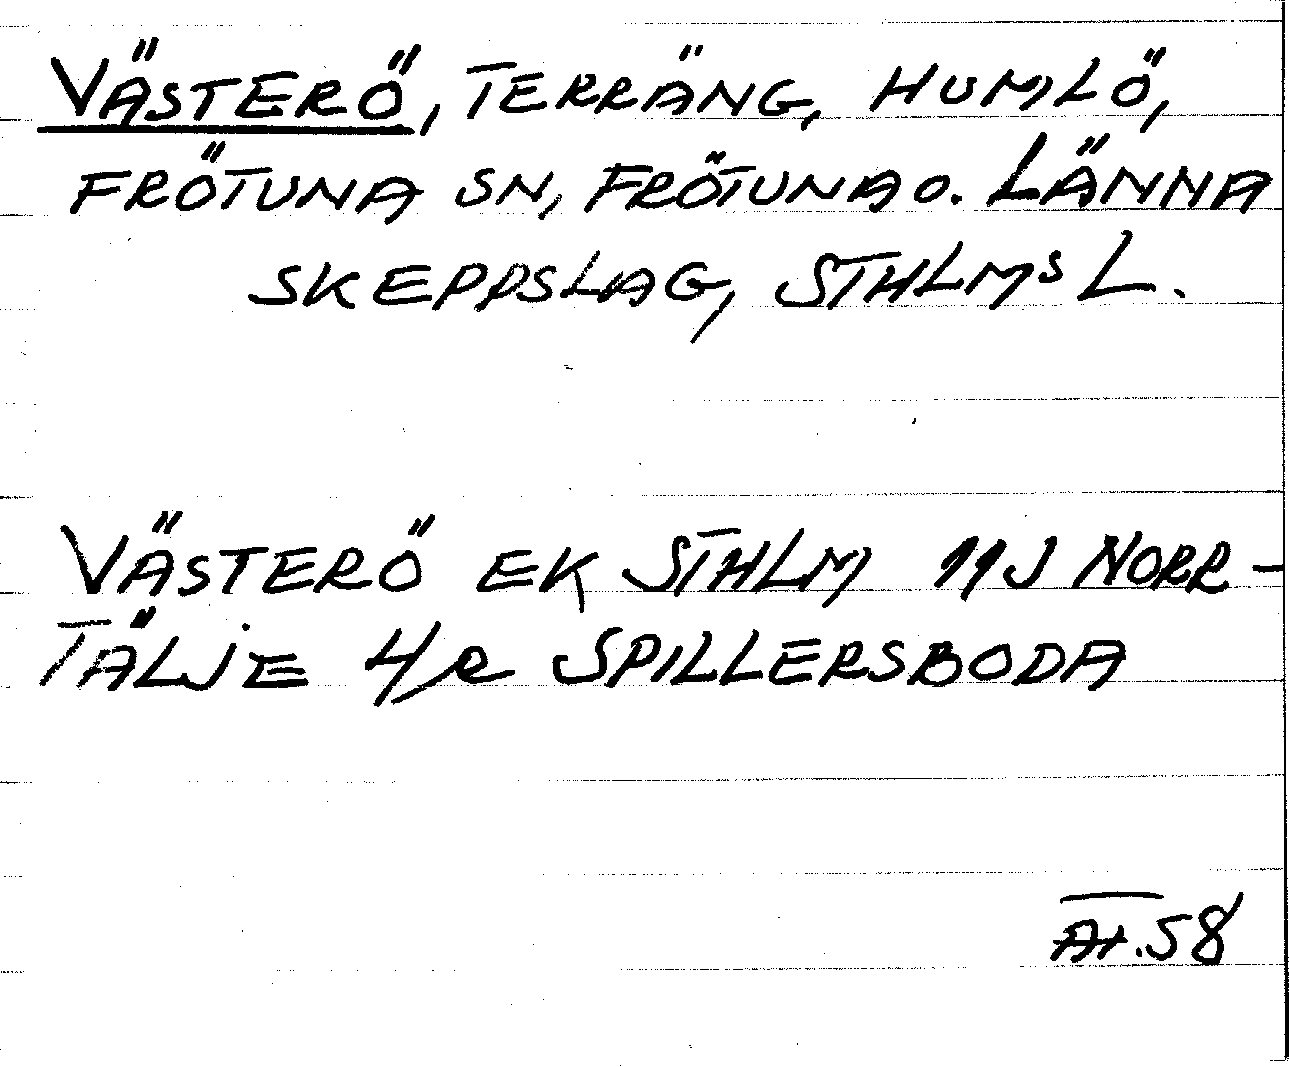 VÄSTERÖ, TERRÄNG, HUMLÖ,
FRÖTUNA SN, FRÖTUNA O. LÄNNA
SKEPPSLAG, STHLMS L.
VÄSTERÖ EK STHLM 11J NORR-
TÄLJE 4/e SPILLERSBODA
58